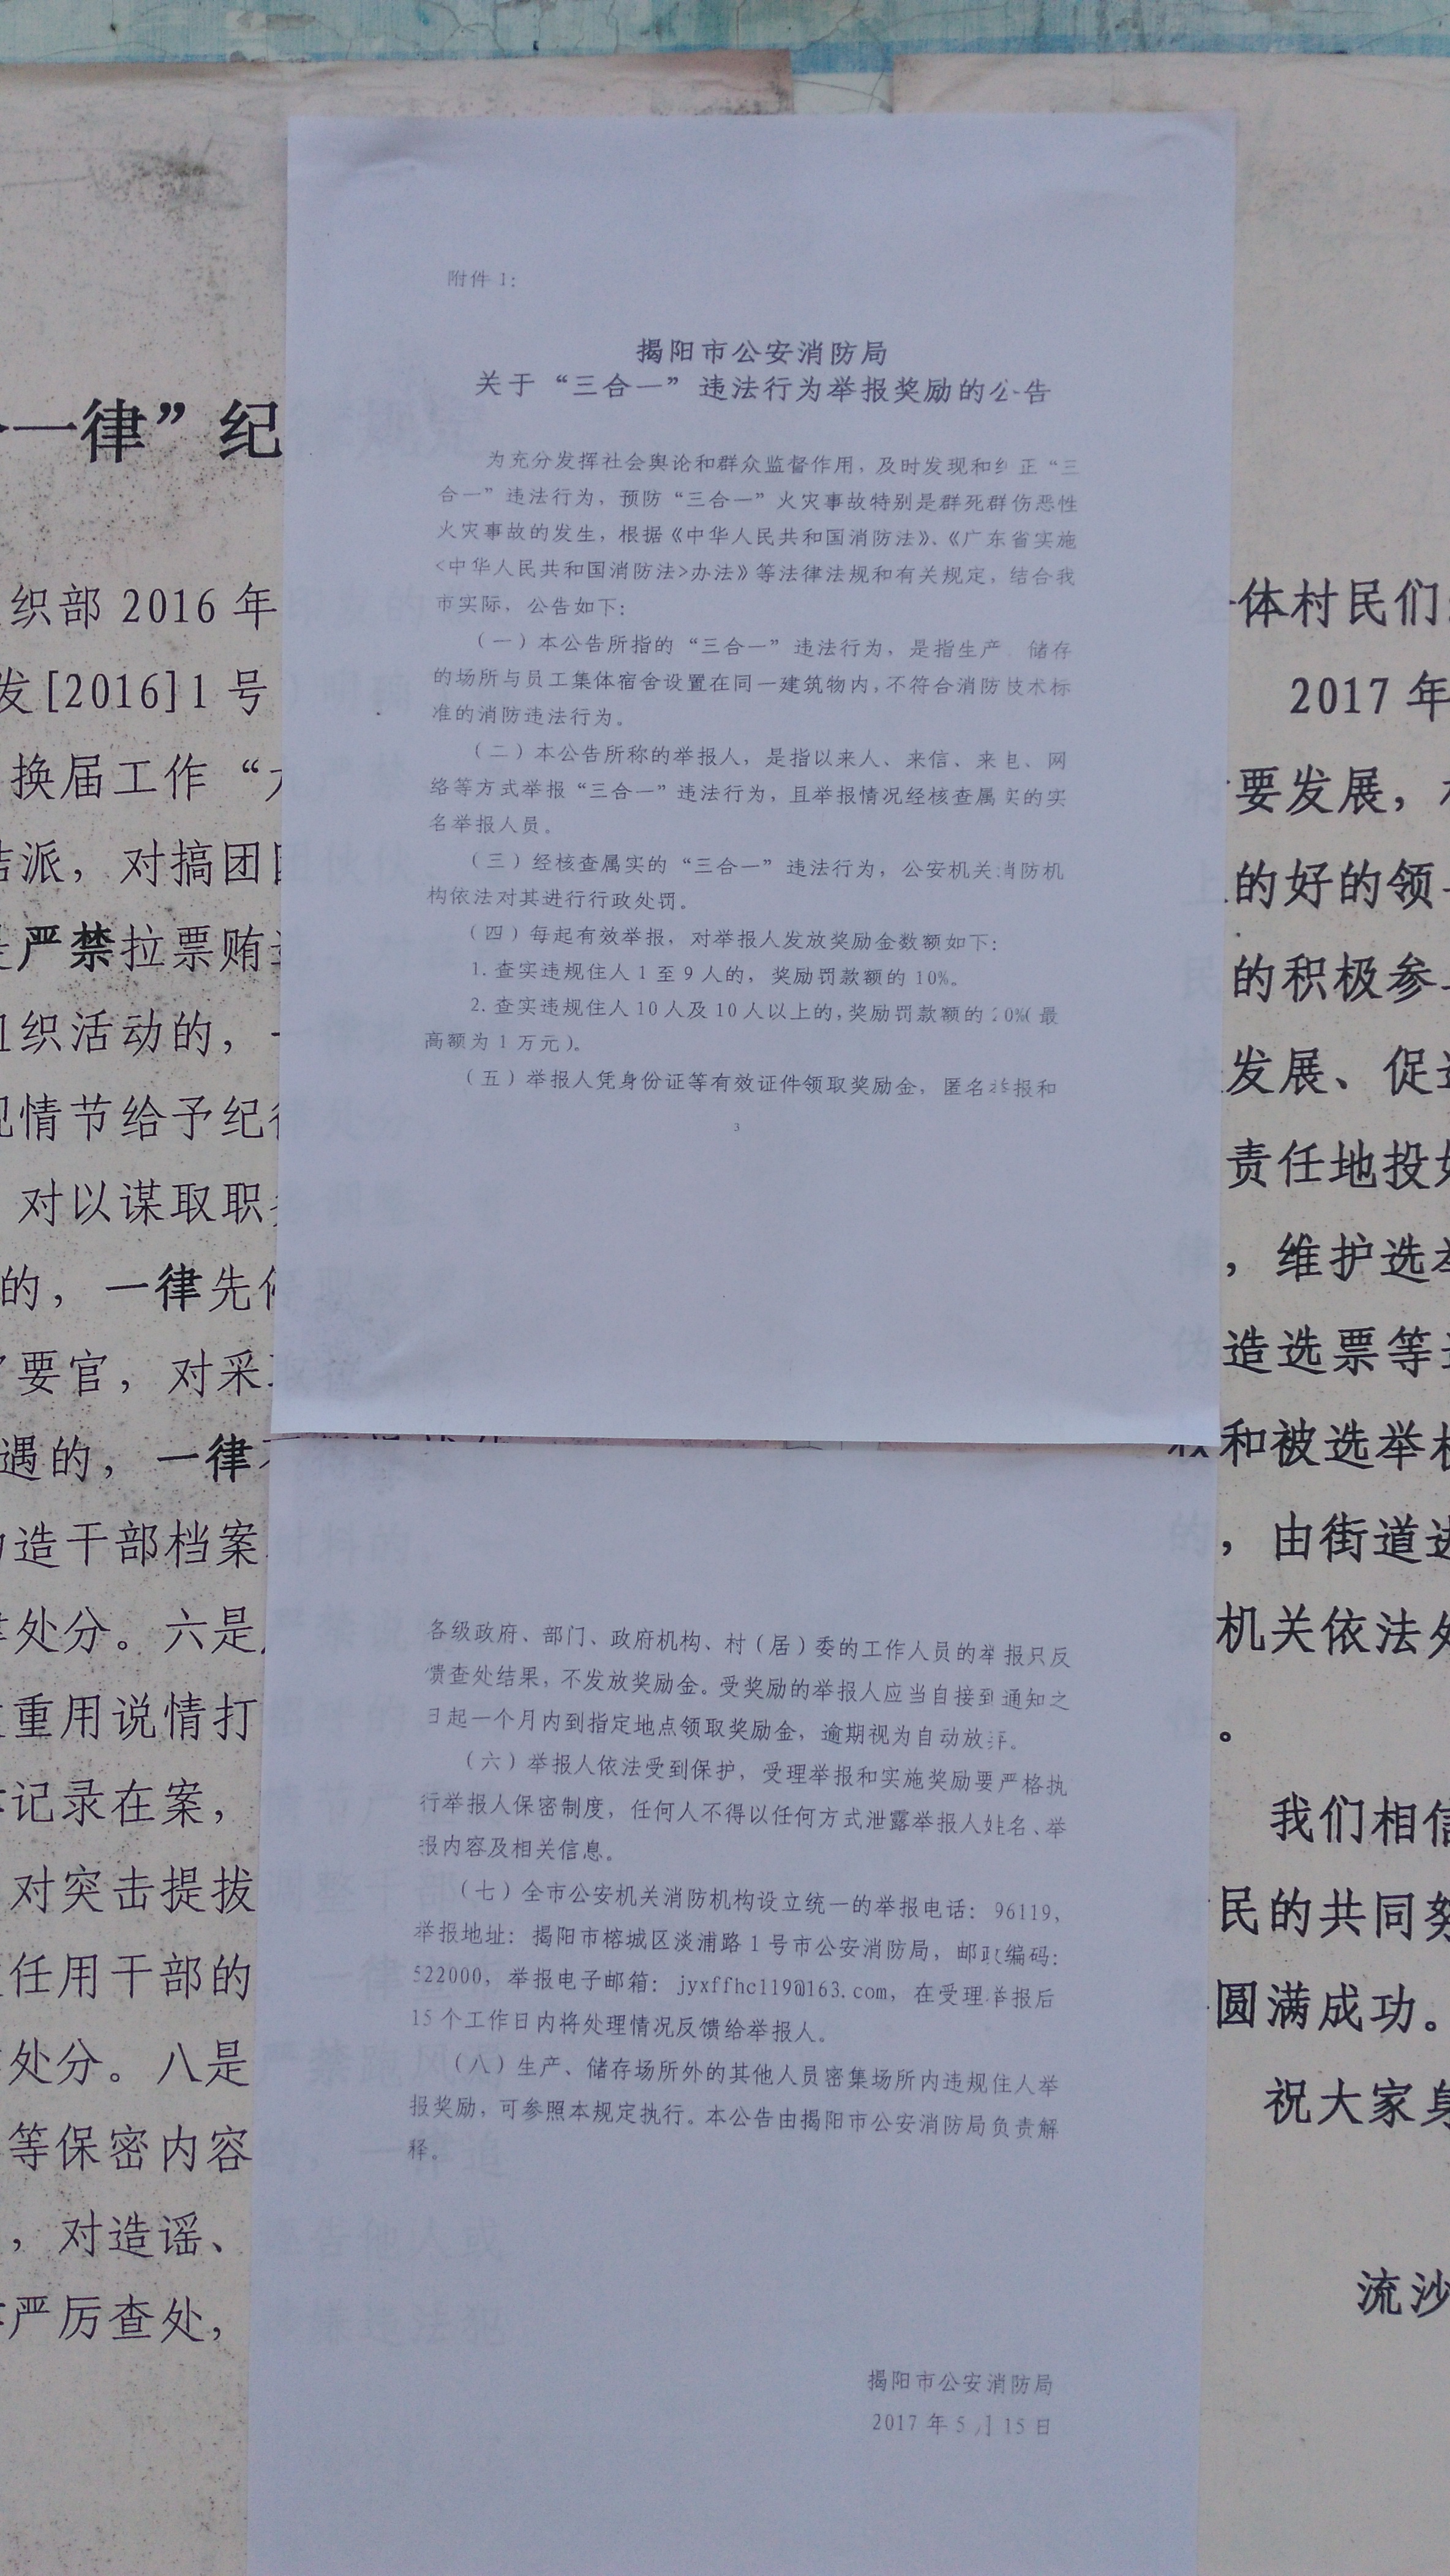 附件1：
揭阳市公安消防局
关于“三合一”违法行为举报奖励的公告
为充分发挥社会舆论和群众监督作用，及时发现和纠正“三
合一”违法行为，预防“三合一”火灾事故特别是群死群伤恶性
火灾事故的发生，根据《中华人民共和国消防法》、《广东省实施
<中华人民共和国消防法>办法》等法律法规和有关规定，结合我
市实际，公告如下：
（一）本公告所指的“三合一”违法行为，是指生产、储存
的场所与员工集体宿舍设置在同一建筑物内，不符合消防技术标
准的消防违法行为。
（二）本公告所称的举报人，是指以来人、来信、来电、网
络等方式举报“三合一”违法行为，且举报情况经核查属实的实
名举报人员。
（三）经核查属实的“三合一”违法行为，公安机关消防机
构依法对其进行行政处罚。
（四）每起有效举报，对举报人发放奖励金数额如下：
1.查实违规住人1至9人的，奖励罚款额的10%。
2.查实违规住人10人及10人以上的，奖励罚款额的20%（最
高额为1万元）。
（五）举报人凭身份证等有效证件领取奖励金，匿名举报和
3
各级政府、部门、政府机构、村（居）委的工作人员的举报只反
馈查处结果，不发放奖励金。受奖励的举报人应当自接到通知之
日起一个月内到指定地点领取奖励金，逾期视为自动放弃。
（六）举报人依法受到保护，受理举报和实施奖励要严格执
行举报人保密制度，任何人不得以任何方式泄露举报人姓名、举
报内容及相关信息。
（七）全市公安机关消防机构设立统一的举报电话：96119，
举报地址：揭阳市榕城区淡浦路1号市公安消防局，邮政编码：
522000，举报电子邮箱：jyxffhc119@163.com，在受理举报后
15个工作日内将处理情况反馈给举报人。
（八）生产、储存场所外的其他人员密集场所内违规住人举
报奖励，可参照本规定执行。本公告由揭阳市公安消防局负责解
释。
揭阳市公安消防局
2017年5月15日
一律”纪
织部2016年
发[2016]1号
换届工作“
结派，对搞团
严禁拉票贿
组织活动的，
视情节给予纪
对以谋取职
的，一律先
要官，对采
遇的，一律
造干部档案
处分。六是
重用说情打
记录在案，
对突击提拔
任用干部的
处分。八是
等保密内容
，对造谣、
严厉查处，
体村民们
2017年
要发展，
的好的领
的积极参
发展、促进
责任地投
，维护选举
造选票等
和被选举权
，由街道
机关依法处
。
我们相信
民的共同努
圆满成功。
祝大家身
流沙